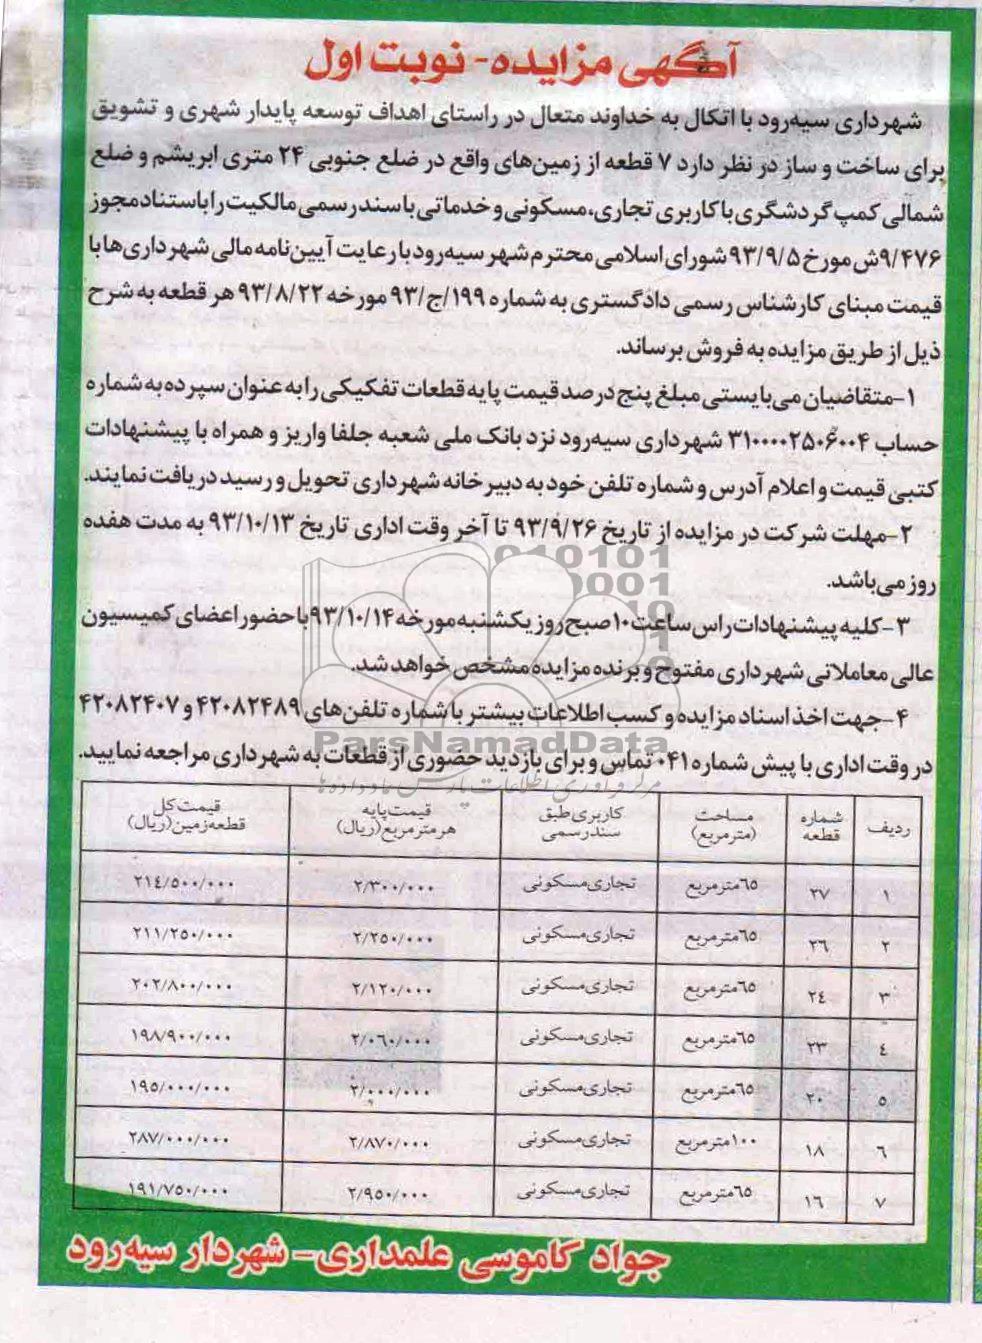 آگهی مزایده- نوبت اول
شهرداری سیه‌رود با اتکال به خداوند متعال در راستای اهداف توسعه پایدار شهری و تشویق
برای ساخت و ساز در نظر دارد ۷ قطعه از زمین‌های واقع در ضلع جنوبی ۲۴ متری ابریشم و ضلع
شمالی کمپ گردشگری با کاربری تجاری، مسکونی و خدماتی با سند رسمی مالکیت را باستناد مجوز
۹/۴۷۶ش مورخ ۹۳/۹/۵ شورای اسلامی محترم شهر سیه‌رود با رعایت آیین‌نامه مالی شهرداری‌ها با
قیمت مبنای کارشناس رسمی دادگستری به شماره ۱۹۹/ج/۹۳ مورخه ۹۳/۸/۲۲ هر قطعه به شرح
ذیل از طریق مزایده به فروش برساند.
۱-متقاضیان می‌بایستی مبلغ پنج درصد قیمت پایه قطعات تفکیکی را به عنوان سپرده به شماره
حساب ۳۱۰۰۰۰۲۵۰۶۰۰۴ شهرداری سیه‌رود نزد بانک ملی شعبه جلفا واریز و همراه با پیشنهادات
کتبی قیمت و اعلام آدرس و شماره تلفن خود به دبیرخانه شهرداری تحویل و رسید دریافت نمایند.
۲-مهلت شرکت در مزایده از تاریخ ۹۳/۹/۲۶ تا آخر وقت اداری تاریخ ۹۳/۱۰/۱۳ به مدت هفده
روز می‌باشد.
۳-کلیه پیشنهادات راس ساعت ۱۰ صبح روز یکشنبه مورخه ۹۳/۱۰/۱۴ با حضور اعضای کمیسیون
عالی معاملاتی شهرداری مفتوح و برنده مزایده مشخص خواهد شد.
۴-جهت اخذ اسناد مزایده و کسب اطلاعات بیشتر با شماره تلفن‌های ۴۲۰۸۲۴۸۹ و ۴۲۰۸۲۴۰۷
در وقت اداری با پیش شماره ۰۴۱ تماس و برای بازدید حضوری از قطعات به شهرداری مراجعه نمایید.
ParsNamadData
ردیف شماره قطعه مساحت (مترمربع) کاربری طبق سند رسمی قیمت پایه هر مترمربع (ریال) قیمت کل قطعه زمین (ریال)
۱ ۲۷ ۶۵مترمربع تجاری مسکونی ۲/۳۰۰/۰۰۰ ۲۱۴/۵۰۰/۰۰۰
۲ ۲۶ ۶۵مترمربع تجاری مسکونی ۲/۲۵۰/۰۰۰ ۲۱۱/۲۵۰/۰۰۰
۳ ۲۴ ۶۵مترمربع تجاری مسکونی ۲/۱۲۰/۰۰۰ ۲۰۲/۸۰۰/۰۰۰
۴ ۲۳ ۶۵مترمربع تجاری مسکونی ۲/۰۶۰/۰۰۰ ۱۹۸/۹۰۰/۰۰۰
۵ ۲۰ ۶۵مترمربع تجاری مسکونی ۲/۰۰۰/۰۰۰ ۱۹۵/۰۰۰/۰۰۰
۶ ۱۸ ۱۰۰مترمربع تجاری مسکونی ۲/۸۷۰/۰۰۰ ۲۸۷/۰۰۰/۰۰۰
۷ ۱۶ ۶۵مترمربع تجاری مسکونی ۲/۹۵۰/۰۰۰ ۱۹۱/۷۵۰/۰۰۰
جواد کاموسی علمداری- شهردار سیه‌رود